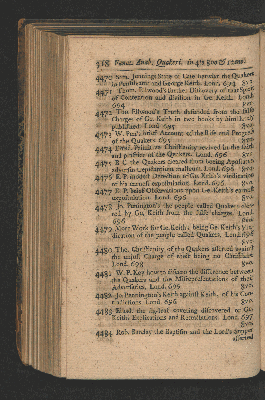 318 Fanat. Anab. Quakeri. in 4to 8vo & 12mo.
4470 Sam. Jennings State of Case between the Quakers
in Pensilvania and George Keith. Lond. 694 8vo.
4471 Thom. Ellwood's further Discovery of that Spirit
of Contention and division in Ge. Keith. Lond.
694 8vo.
4472 Tho. Ellwood's Truth defended from the false
Charges of Ge. Keith in two books by him
published Lond. 695 8vo.
4473 W. Pen's brief Account of the Rise and Progress
of the Quakers. Lond. 694 8vo.
4474 Primitive Christianity revived in the faith
and practice of the Quakers. Lond. 696 8vo.
4475 the Quakers cleared from being Apostates
adversus Lond. 696 8vo.
4476 E. P. modest Detection of Ge. Keith's vindication
of his earnest expostulation. Lond. 696 8vo.
4477 E. P. brief Observations upon Ge. Keith's earnest
expostulation. Lond. 696 8vo.
4478 Jo. Penington's the people called Quakers
by Ge. Keith from the false charges. Lond.
696 8vo.
4479 More Work for Ge. Keith, being Ge. Keith's
of the people called Quakers. Lond. 696
8vo.
4480 The Christianity of the Quakers asserted against
the unjust Charge of their being no Christians
Lond. 698 8vo.
4481 W. P. Key how to discern the difference between
the Quakers and the Misrepresentations of their
Adversaries. Lond. 696 8vo.
4482 Jo. Pennington's Keith against Keith, of his
Lond. 696 8vo.
4483 the fig-leaf covering discovered or Ge.
Keith's Explications and Retractations. Lond. 697
8vo.
4484 Rob. Barclay the Baptism and the Lord's supper
asserted